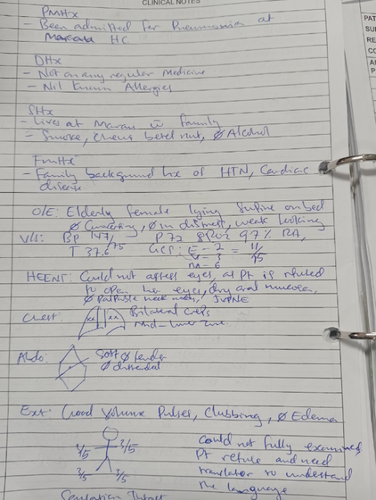 CLINICAL NOTES
PMHx
- Been admitted for Pneumonia at
HC
DHx
- Not on any regular Medicine
- Nil known Allergies
SHx
- Lives at w̄ Family
- Smoke, chews betel nut, Ø Alcohol
FmHx
- Family background hx of HTN, Cardiac
disease
O/E: Elderly female lying supine on bed
Ø in distress, weak looking
V/S: BP 147/75 P 72 SPO2 97% RA,
T 37.6 GCS: E - 2 = 11/15
V - 3
M - 6
HEENT: Could not assess eyes, as pt is refused
to open her eyes, dry oral mucosa,
Ø palpable neck , JVPNE
Chest Bilateral creps
mid-lower zone
xx xx
Abdo: Soft Ø tender
Ø distended
Ext: Good Volume Pulses, Clubbing, Ø Edema
3/5 3/5
3/5 3/5
Could not fully examined
Pt refuse and need
translator to understand
the language
Sensation Intact